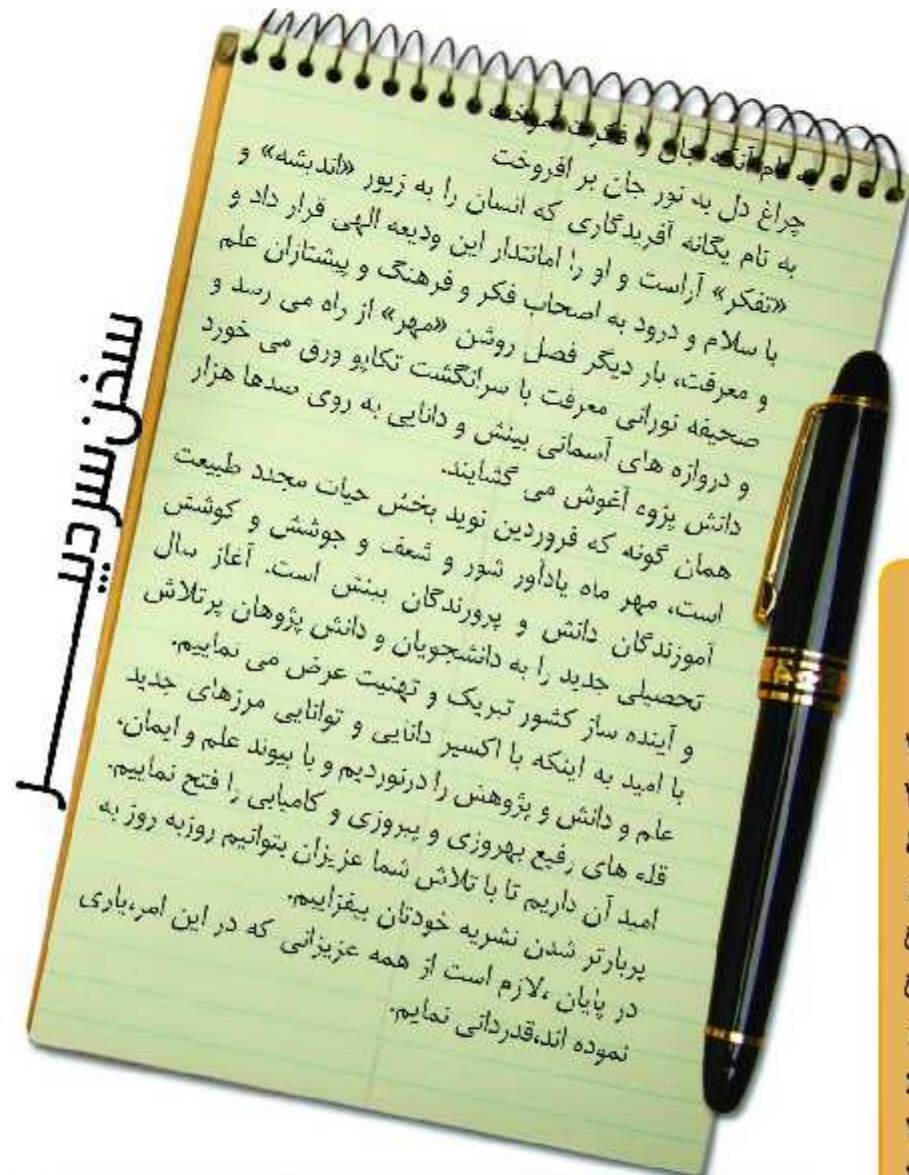 سخن سردبیر
به نام آنکه جان را فکرت آموخت
چراغ دل به نور جان بر افروخت
به نام یگانه آفریدگاری که انسان را به زیور «اندیشه» و
«تفکر» آراست و او را امانتدار این ودیعه الهی قرار داد و
با سلام و درود به اصحاب فکر و فرهنگ و پیشتازان علم
و معرفت، بار دیگر فصل روشن «مهر» از راه می رسد و
صحیفه نورانی معرفت با سرانگشت تکاپو ورق می خورد
و دروازه های آسمانی بینش و دانایی به روی صدها هزار
دانش پزوه آغوش می گشایند.
همان گونه که فروردین نوید بخش حیات مجدد طبیعت
است، مهر ماه یادآور شور و شعف و جوشش و کوشش
آموزندگان دانش و پرورندگان بینش است. آغاز سال
تحصیلی جدید را به دانشجویان و دانش پژوهان پرتلاش
و آینده ساز کشور تبریک و تهنیت عرض می نماییم.
با امید به اینکه با اکسیر دانایی و توانایی مرزهای جدید
علم و دانش و پژوهش را درنوردیم و با پیوند علم و ایمان،
قله های رفیع بهروزی و پیروزی و کامیابی را فتح نماییم.
امید آن داریم تا با تلاش شما عزیزان بتوانیم روزبه روز به
پربارتر شدن نشریه خودتان بیفزاییم.
در پایان ،لازم است از همه عزیزانی که در این امر،یاری
نموده اند،قدردانی نمایم.